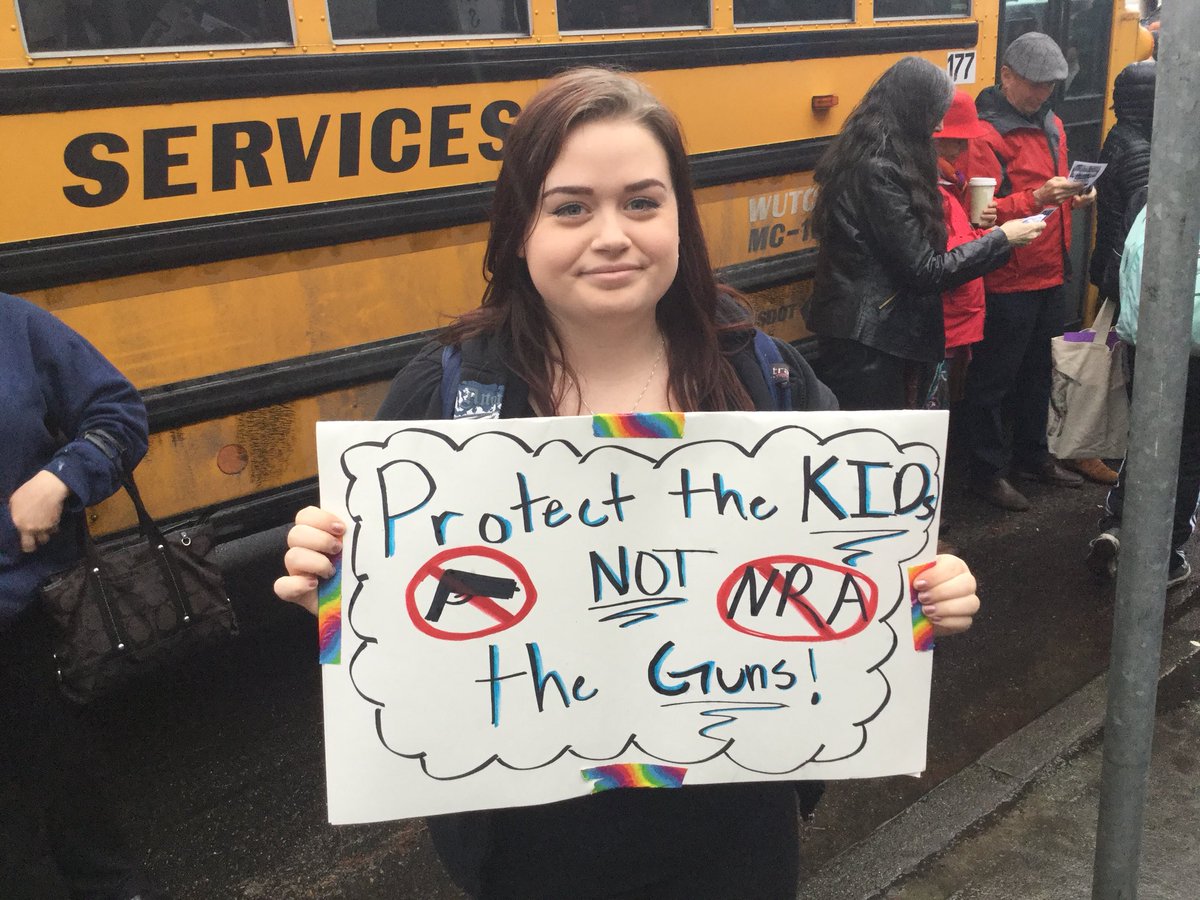 SERVICES
177
WUTC
MC-1
Protect the KIDs
NOT
NRA
the Guns!